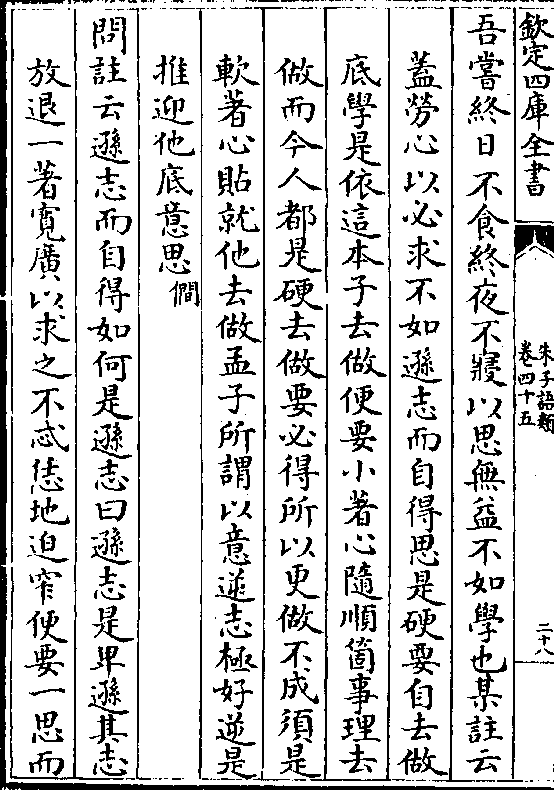 欽定四庫全書
朱子語類
卷四十五
二十八
吾嘗終日不食終夜不寢以思無益不如學也某註云
蓋勞心以必求不如遜志而自得思是硬要自去做
底學是依這本子去做便要小著心隨順箇事理去
做而今人都是硬去做要必得所以更做不成須是
軟著心貼就他去做孟子所謂以意逆志極好逆是
推迎他底意思僩
問註云遜志而自得如何是遜志曰遜志是卑遜其志
放退一著寛廣以求之不忒恁地迫窄便要一思而